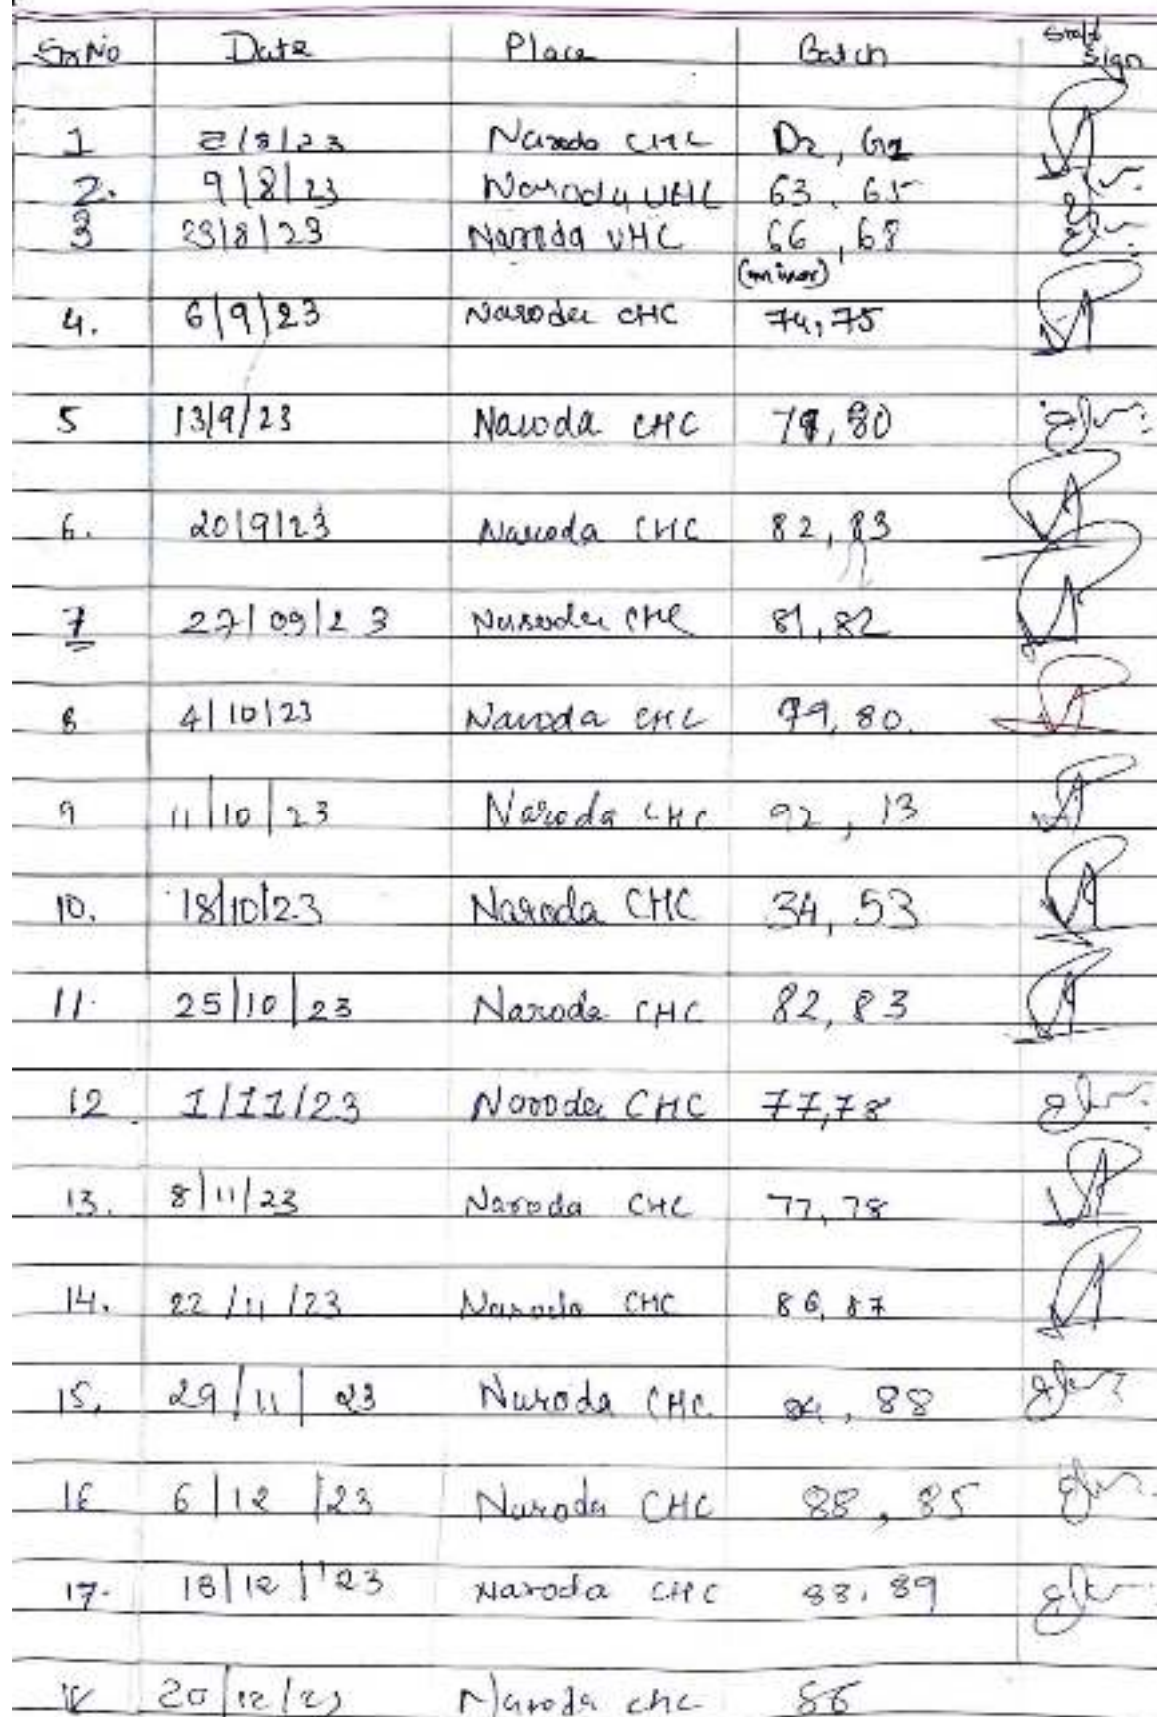 Sr No Date Place Batch Staff Sign
1 2/8/23 Naroda CHC D2, G2
2. 9/8/23 Naroda UHC 63, 65
3 23/8/23 Naroda UHC 66, 68
(minor)
4. 6/9/23 Naroda CHC 74, 75
5 13/9/23 Naroda CHC 79, 80
6. 20/9/23 Naroda CHC 82, 83
7 27/09/23 Naroda CHC 81, 82
8 4/10/23 Naroda CHC 79, 80.
9 11/10/23 Naroda CHC 92, 13
10. 18/10/23 Naroda CHC 34, 53
11. 25/10/23 Naroda CHC 82, 83
12. 1/11/23 Naroda CHC 77,78
13. 8/11/23 Naroda CHC 77, 78
14. 22/11/23 Naroda CHC 86, 87
15. 29/11/23 Naroda CHC. 84, 88
16 6/12/23 Naroda CHC 88, 85
17. 18/12/23 Naroda CHC 83, 89
20/12/23 Naroda CHC 86